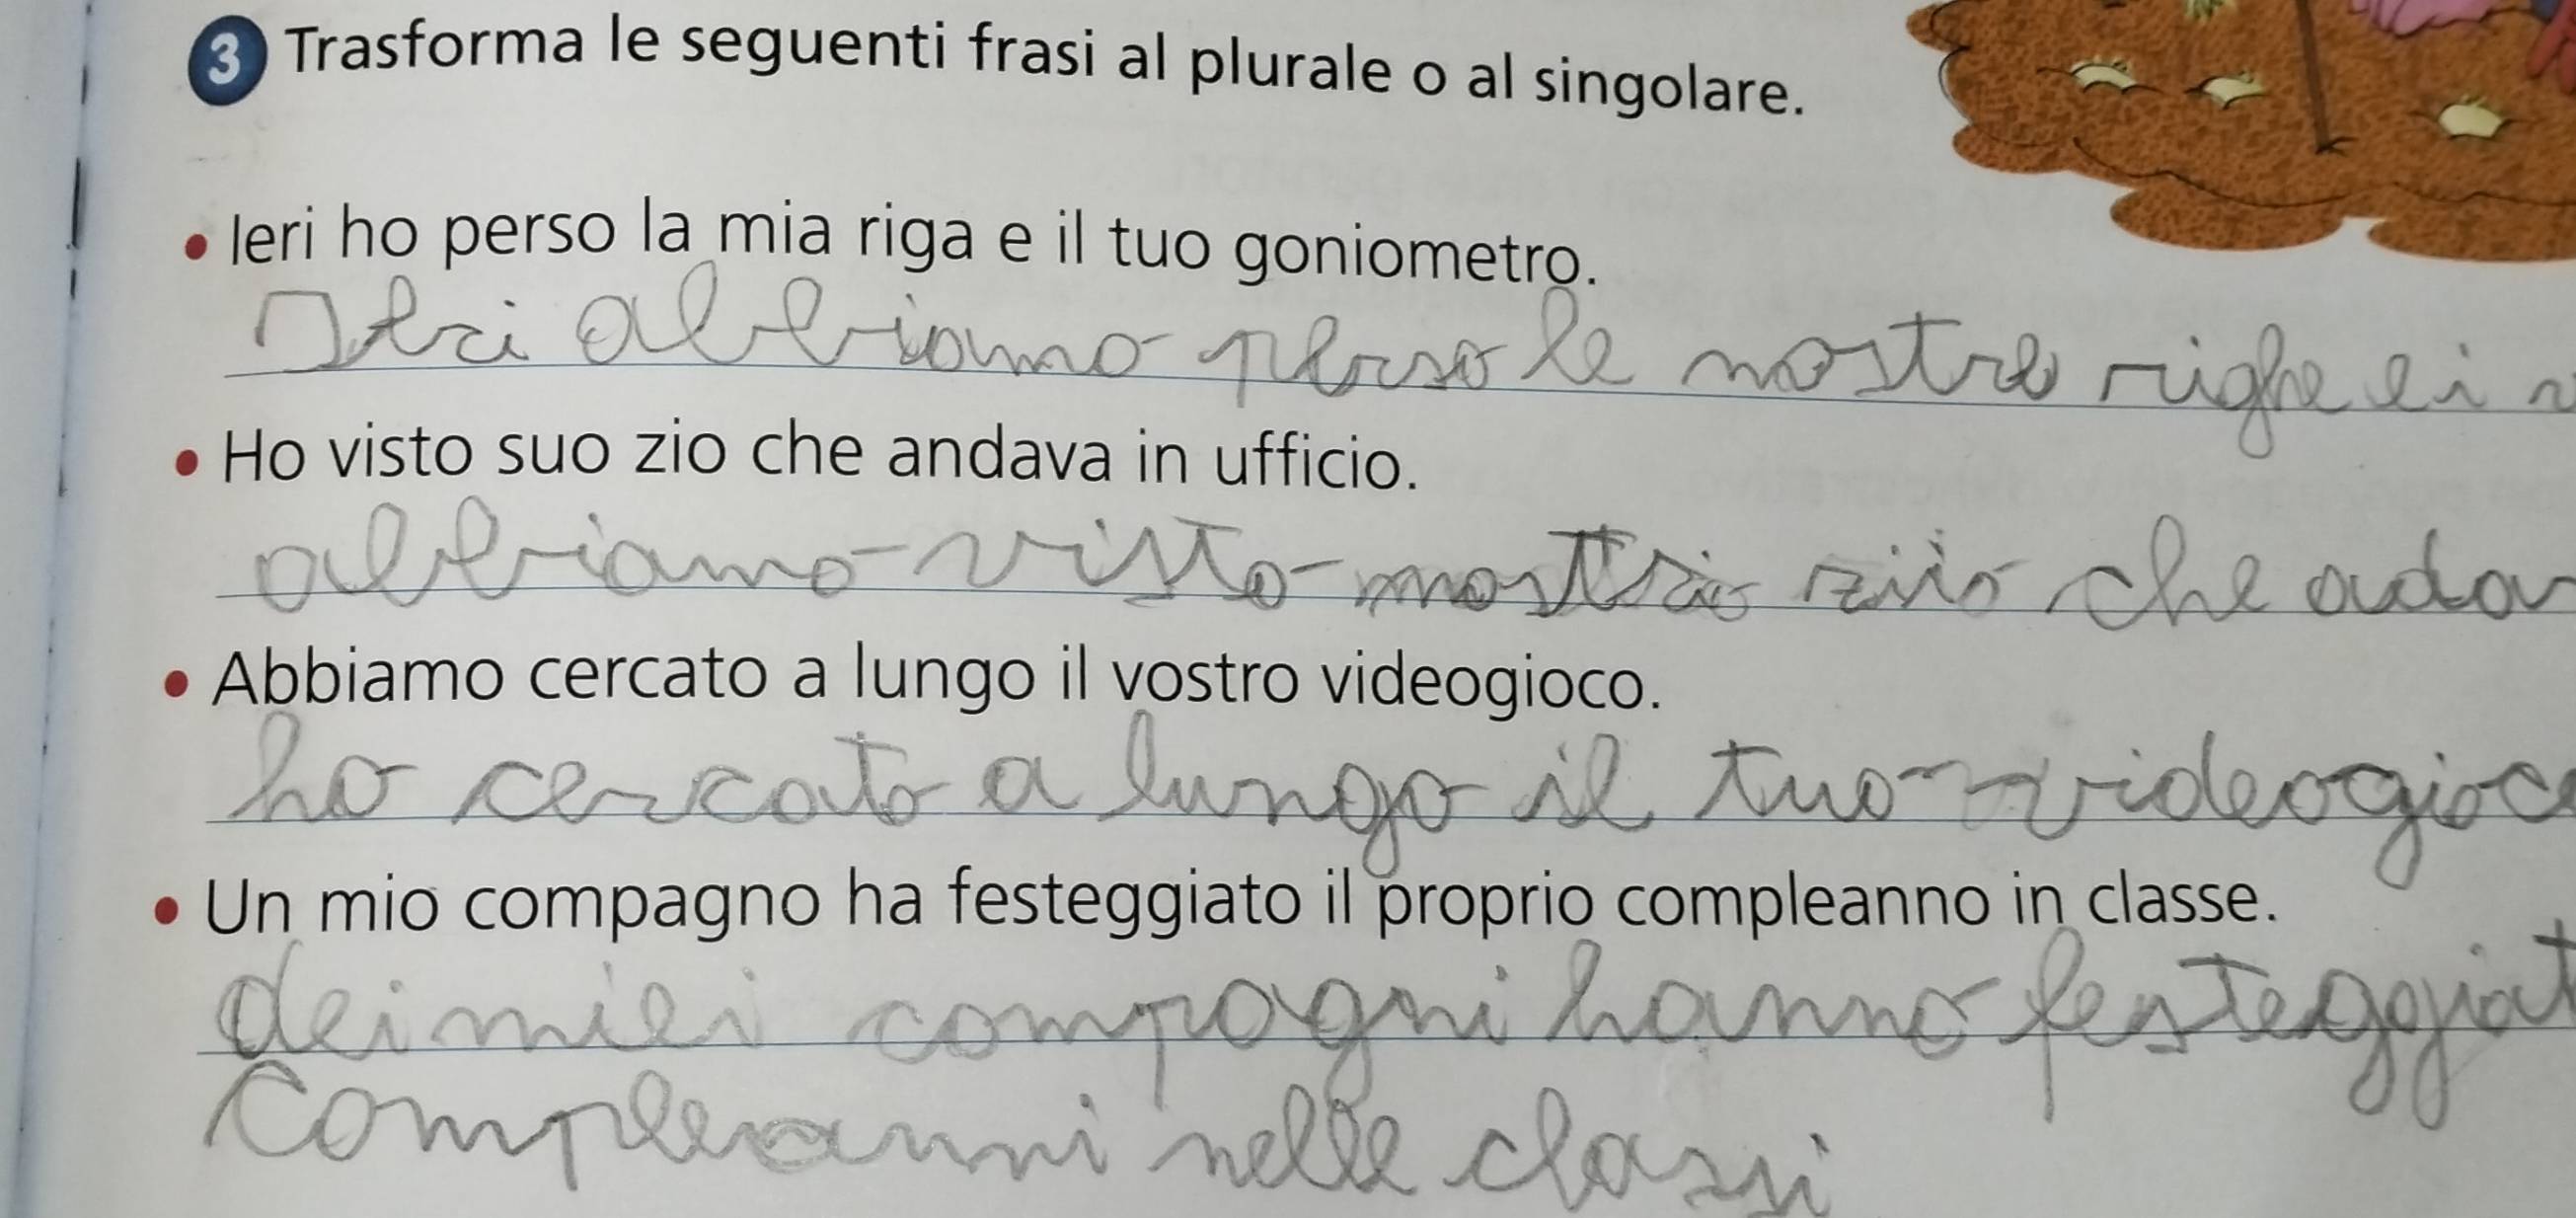 3 Trasforma le seguenti frasi al plurale o al singolare.
• Ieri ho perso la mia riga e il tuo goniometro.
Ieri abbiamo perso le nostre righe e i
• Ho visto suo zio che andava in ufficio.
abbiamo visto che adav
• Abbiamo cercato a lungo il vostro videogioco.
ho cercato a lungo il tuo videogioco
• Un mio compagno ha festeggiato il proprio compleanno in classe.
dei miei compagni hanno festeggiat
compleanni nelle classi